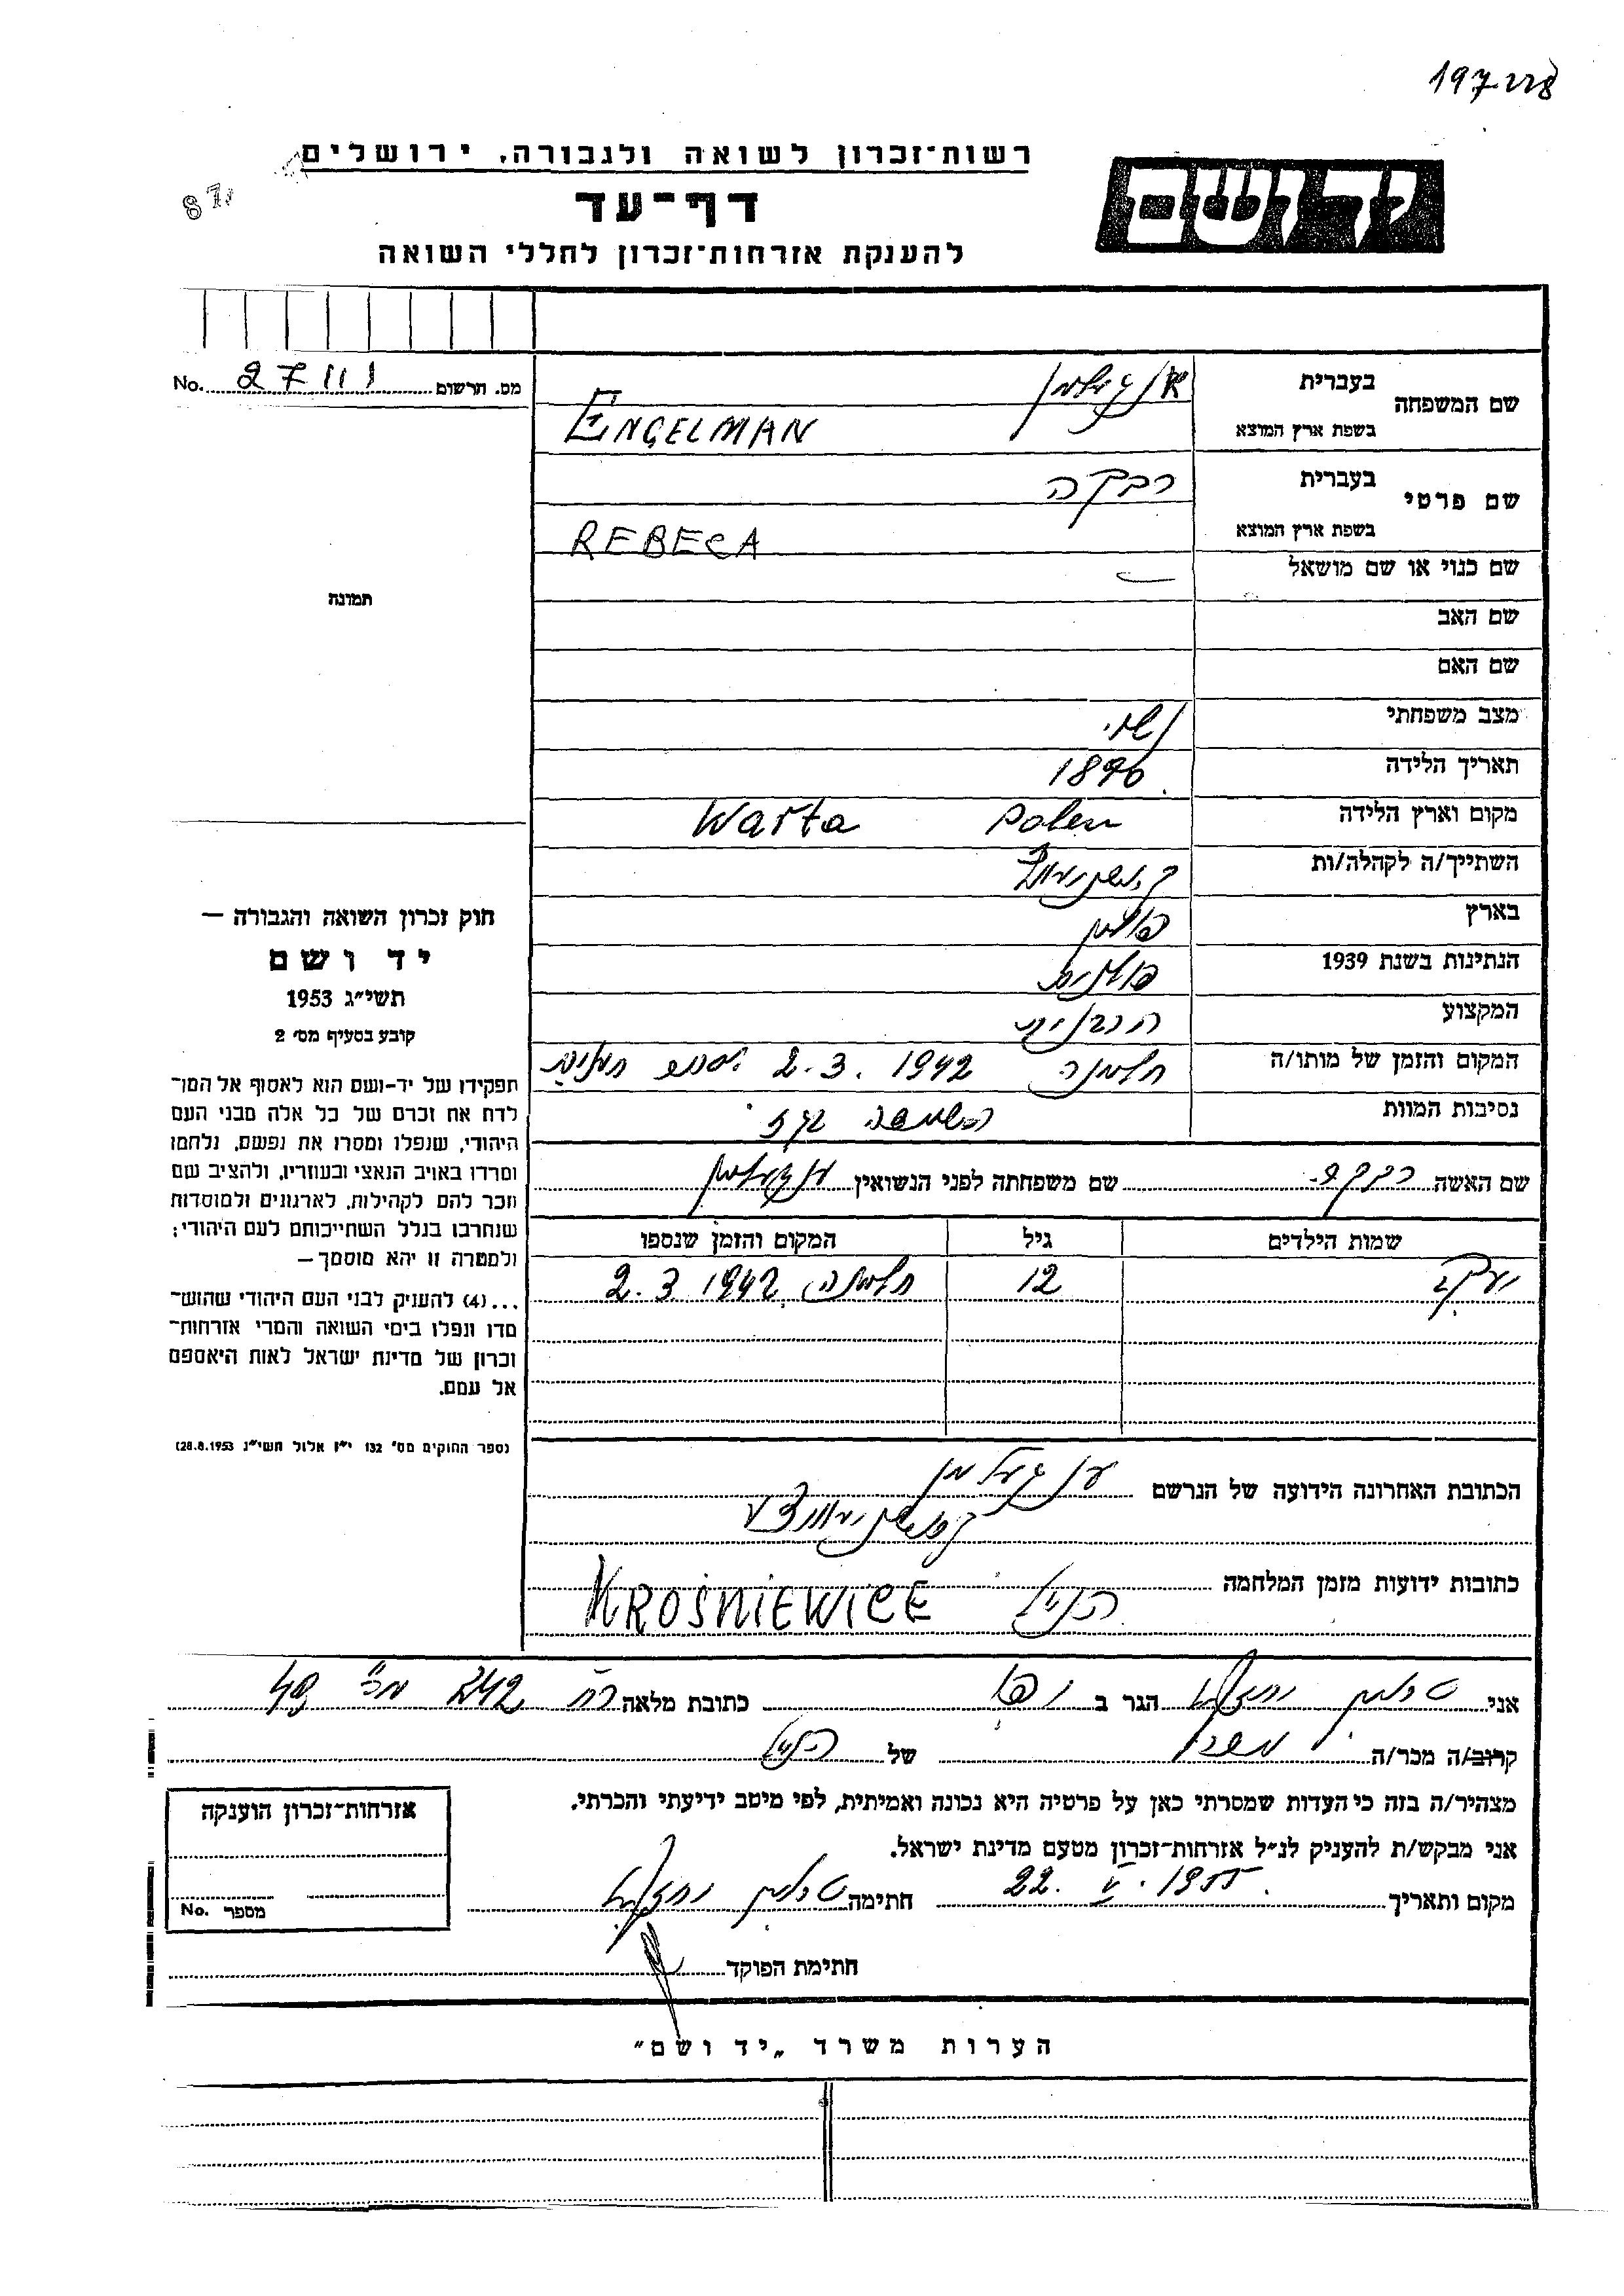 197228
רשות־זכרון לשואה ולגבורה, ירושלים
יד ושם
דף־עד
להענקת אזרחות־זכרון לחללי השואה
מס. תרשום No. 27111
שם המשפחה
בעברית
בשפת ארץ המוצא ENGELMAN
שם פרטי
בעברית רבקה
בשפת ארץ המוצא REBECA
שם כנוי או שם מושאל —
תמונה
שם האב
שם האם
מצב משפחתי
תאריך הלידה 1896
מקום וארץ הלידה Polen Warta
השתייך/ה לקהלה/ות
בארץ פוילן
הנתינות בשנת 1939
המקצוע
המקום והזמן של מותו/ה חלמנה 2.3.1942
נסיבות המוות
שם האשה רבקה שם משפחתה לפני הנשואין ענגעלמאן
שמות הילדים גיל המקום והזמן שנספו
יעקב 12 חלמנה 2.3 1942
הכתובת האחרונה הידועה של הנרשם ענגעלמאן
כתובות ידועות מזמן המלחמה
הנ״ל KROŚNIEWICE
חוק זכרון השואה והגבורה —
יד ושם
תשי״ג 1953
קובע בסעיף מס׳ 2
תפקידו של יד-ושם הוא לאסוף אל המו־
לדת את זכרם של כל אלה מבני העם
היהודי, שנפלו ומסרו את נפשם, נלחמו
ומרדו באויב הנאצי ובעוזריו, ולהציב שם
וזכר להם לקהילות, לארגונים ולמוסדות
שנחרבו בגלל השתייכותם לעם היהודי;
ולמטרה זו יהא מוסמך —
...(4) להעניק לבני העם היהודי שהוש־
מדו ונפלו בימי השואה והמרי אזרחות־
זכרון של מדינת ישראל לאות היאספם
אל עמם.
(ספר החוקים מס׳ 132 י״ז אלול תשי״ג 28.8.1953)
אני הגר ב יפו כתובת מלאה רח 242 מס 48
קרוב/ה מכר/ה של הנ״ל
מצהיר/ה בזה כי העדות שמסרתי כאן על פרטיה היא נכונה ואמיתית, לפי מיטב ידיעתי והכרתי.
אני מבקש/ת להעניק לנ״ל אזרחות־זכרון מטעם מדינת ישראל.
מקום ותאריך 22. V. 1955 חתימה
חתימת הפוקד
אזרחות־זכרון הוענקה
מספר No.
הערות משרד „יד ושם״